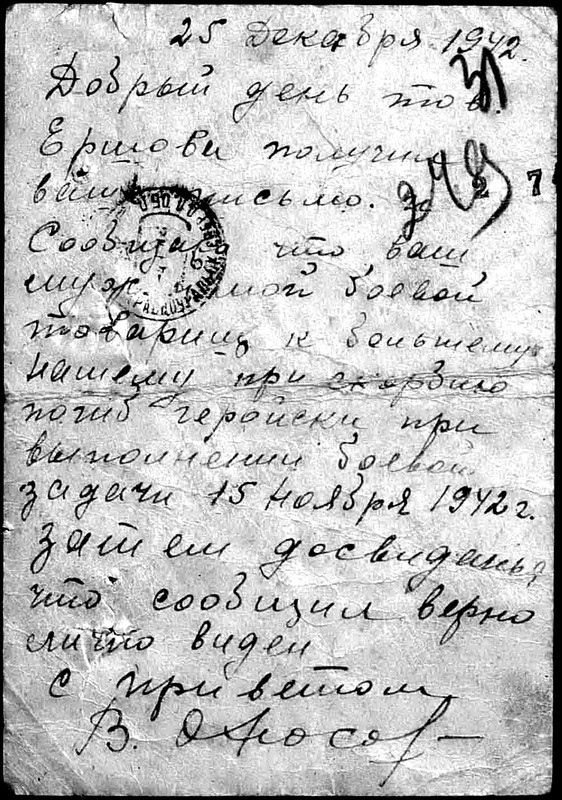 25 Декабря 1942.
Добрый день тов.
Ершова получил
ваше письмо.
2 7
Сообщаю что ваш
муж мой боевой
товарищ к большему
нашему при скорбию
погиб геройски при
выполнении боевой
задачи 15 ноября 1942 г.
Затем досвидань,
что сообщил верно
лично виден
с приветом
В.